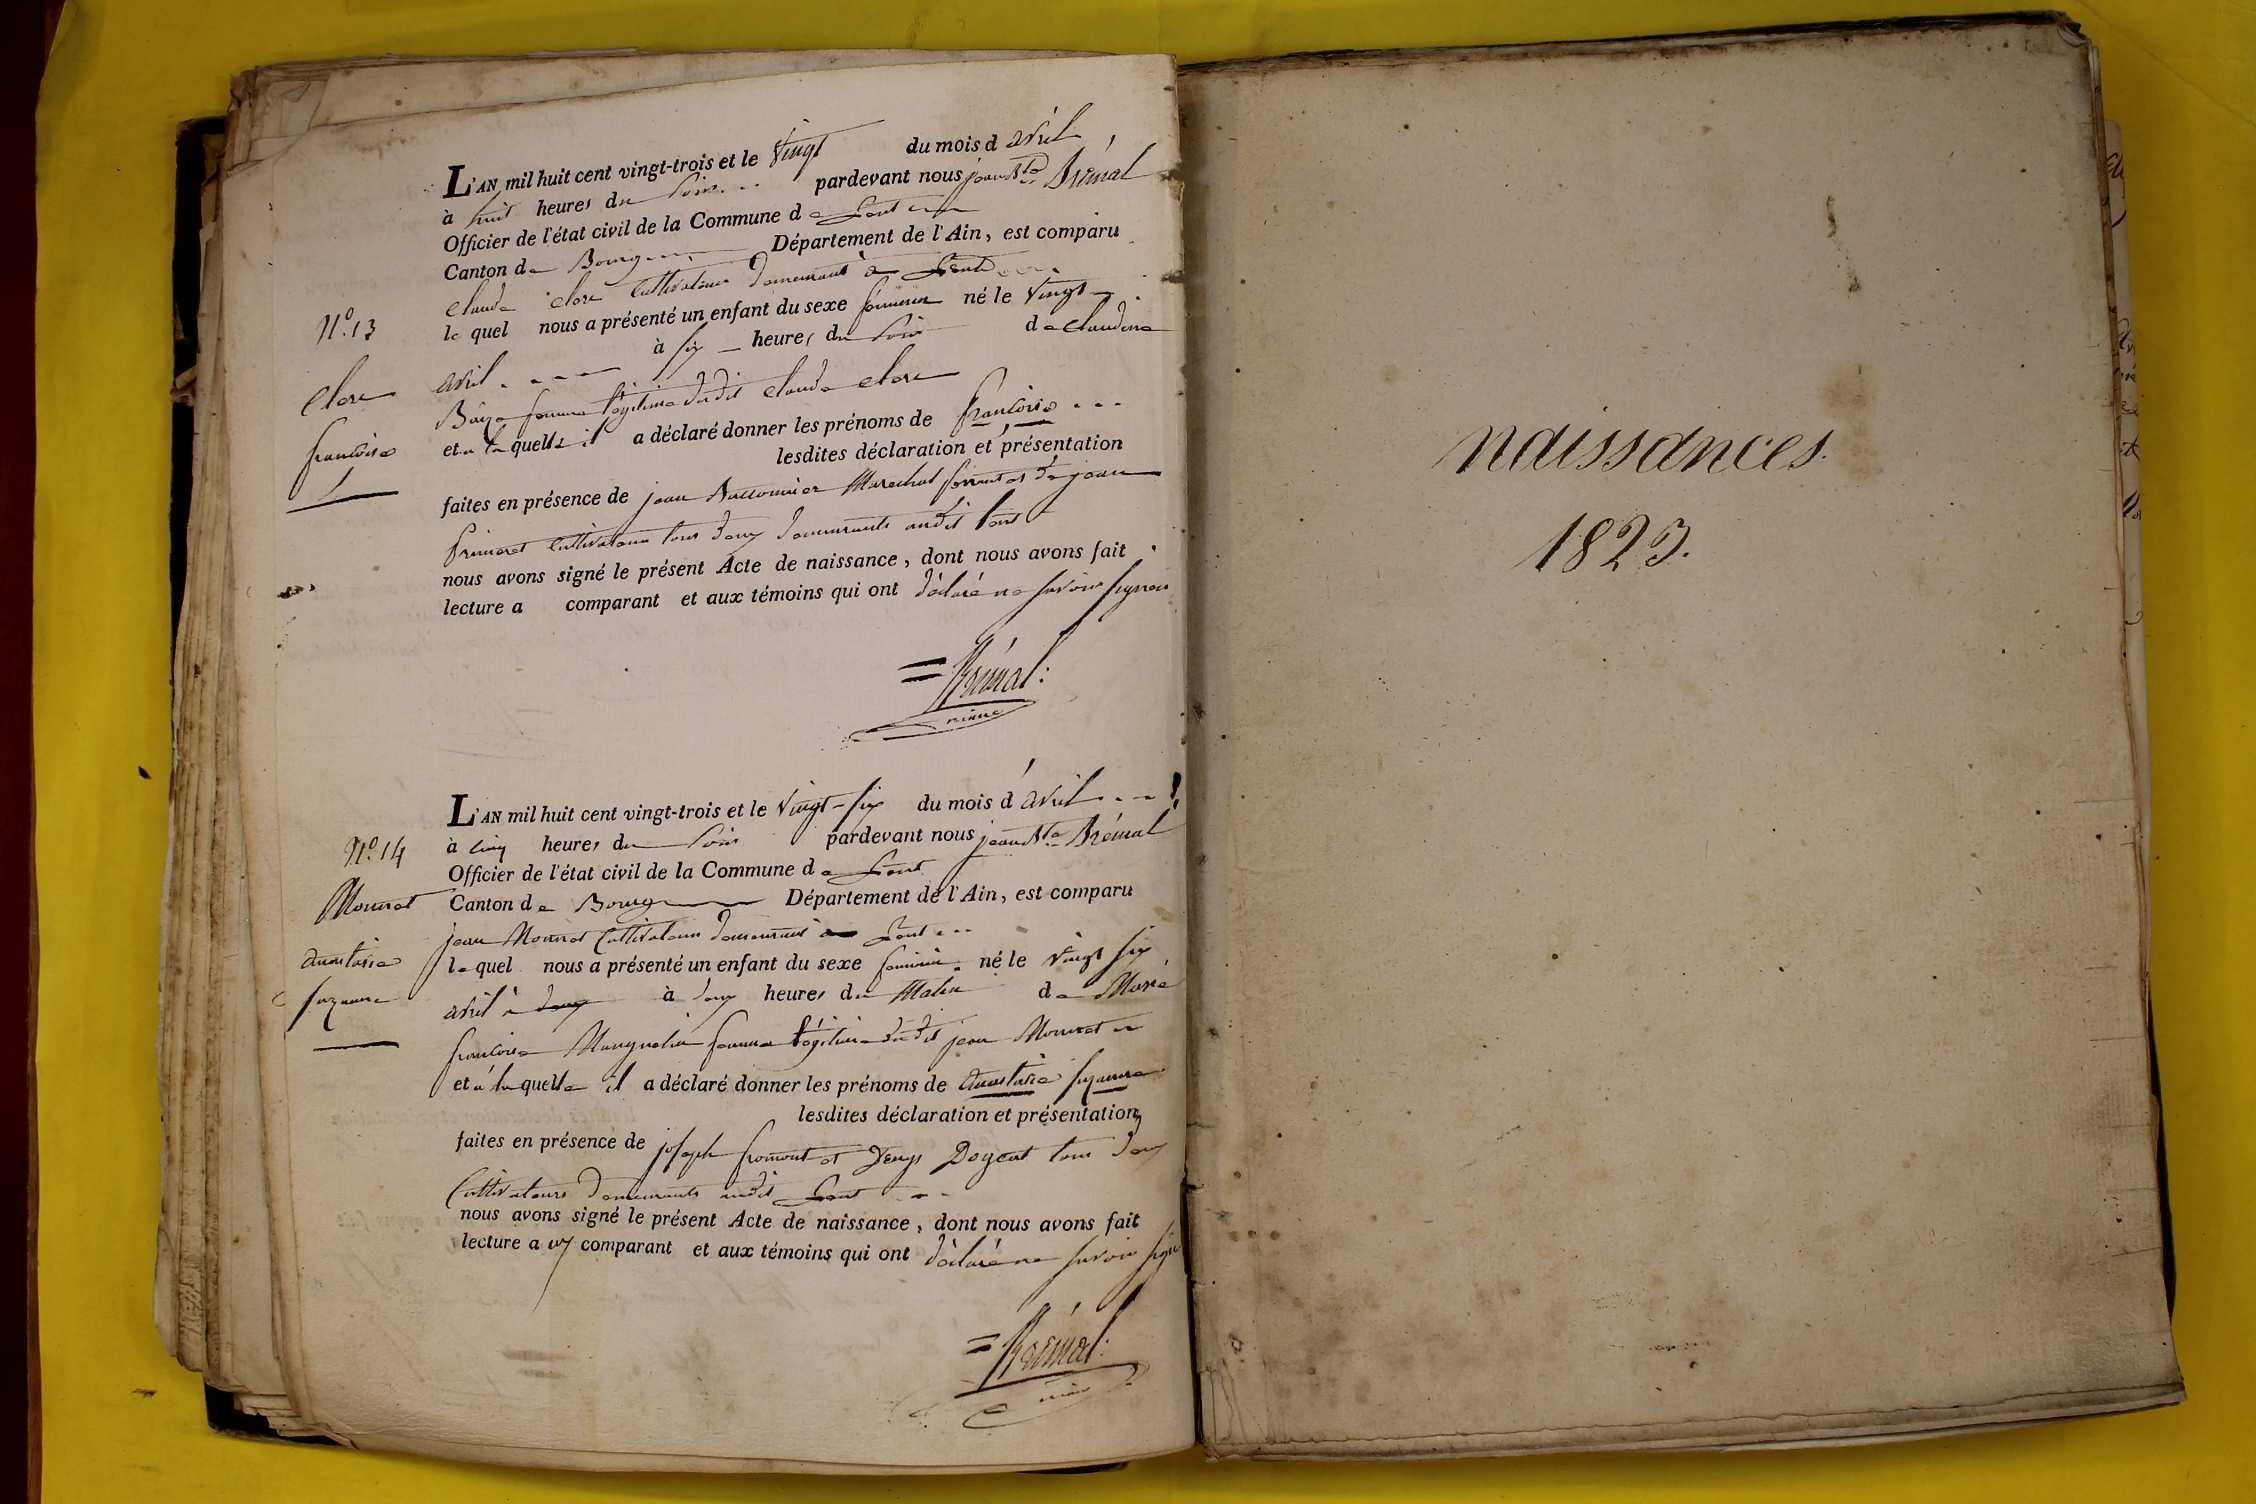 L'AN mil huit cent vingt-trois et le Vingt du mois d avril
à huit heures du Soir pardevant nous jean Bte Brémal
Officier de l'état civil de la Commune de
Canton de Bourg Département de l'Ain, est comparu
Claude Clere Cultivateur demeurant à
N.º 13
le quel nous a présenté un enfant du sexe féminin né le Vingt
avril à six heures du Soir de Claudine
Clere
femme légitime dudit Claude Clere
et a laquelle il a déclaré donner les prénoms de françoise
françoise
lesdites déclaration et présentation
faites en présence de jean Marechal ferrant et de jean
Cultivateur tous deux demeurants audit
nous avons signé le présent Acte de naissance, dont nous avons fait
lecture a comparant et aux témoins qui ont déclaré ne savoir signer
= Brémal
maire
L'AN mil huit cent vingt-trois et le Vingt-six du mois d'avril
N.º 14
à cinq heures du Soir pardevant nous jean Bte Brémal
Officier de l'état civil de la Commune de
Monnet
Canton de Bourg Département de l'Ain, est comparu
jean Monnet Cultivateur demeurant à
anastasie
le quel nous a présenté un enfant du sexe féminin né le vingt six
suzanne
avril à deux à deux heures du Matin de Marie
françoise femme légitime dudit jean Monnet
et à laquelle il a déclaré donner les prénoms de anastasie suzanne
lesdites déclaration et présentation
faites en présence de joseph fromont et Denys Doyent tous deux
Cultivateurs demeurants audit
nous avons signé le présent Acte de naissance, dont nous avons fait
lecture a comparant et aux témoins qui ont déclaré ne savoir
= Brémal
naissances.
1823.